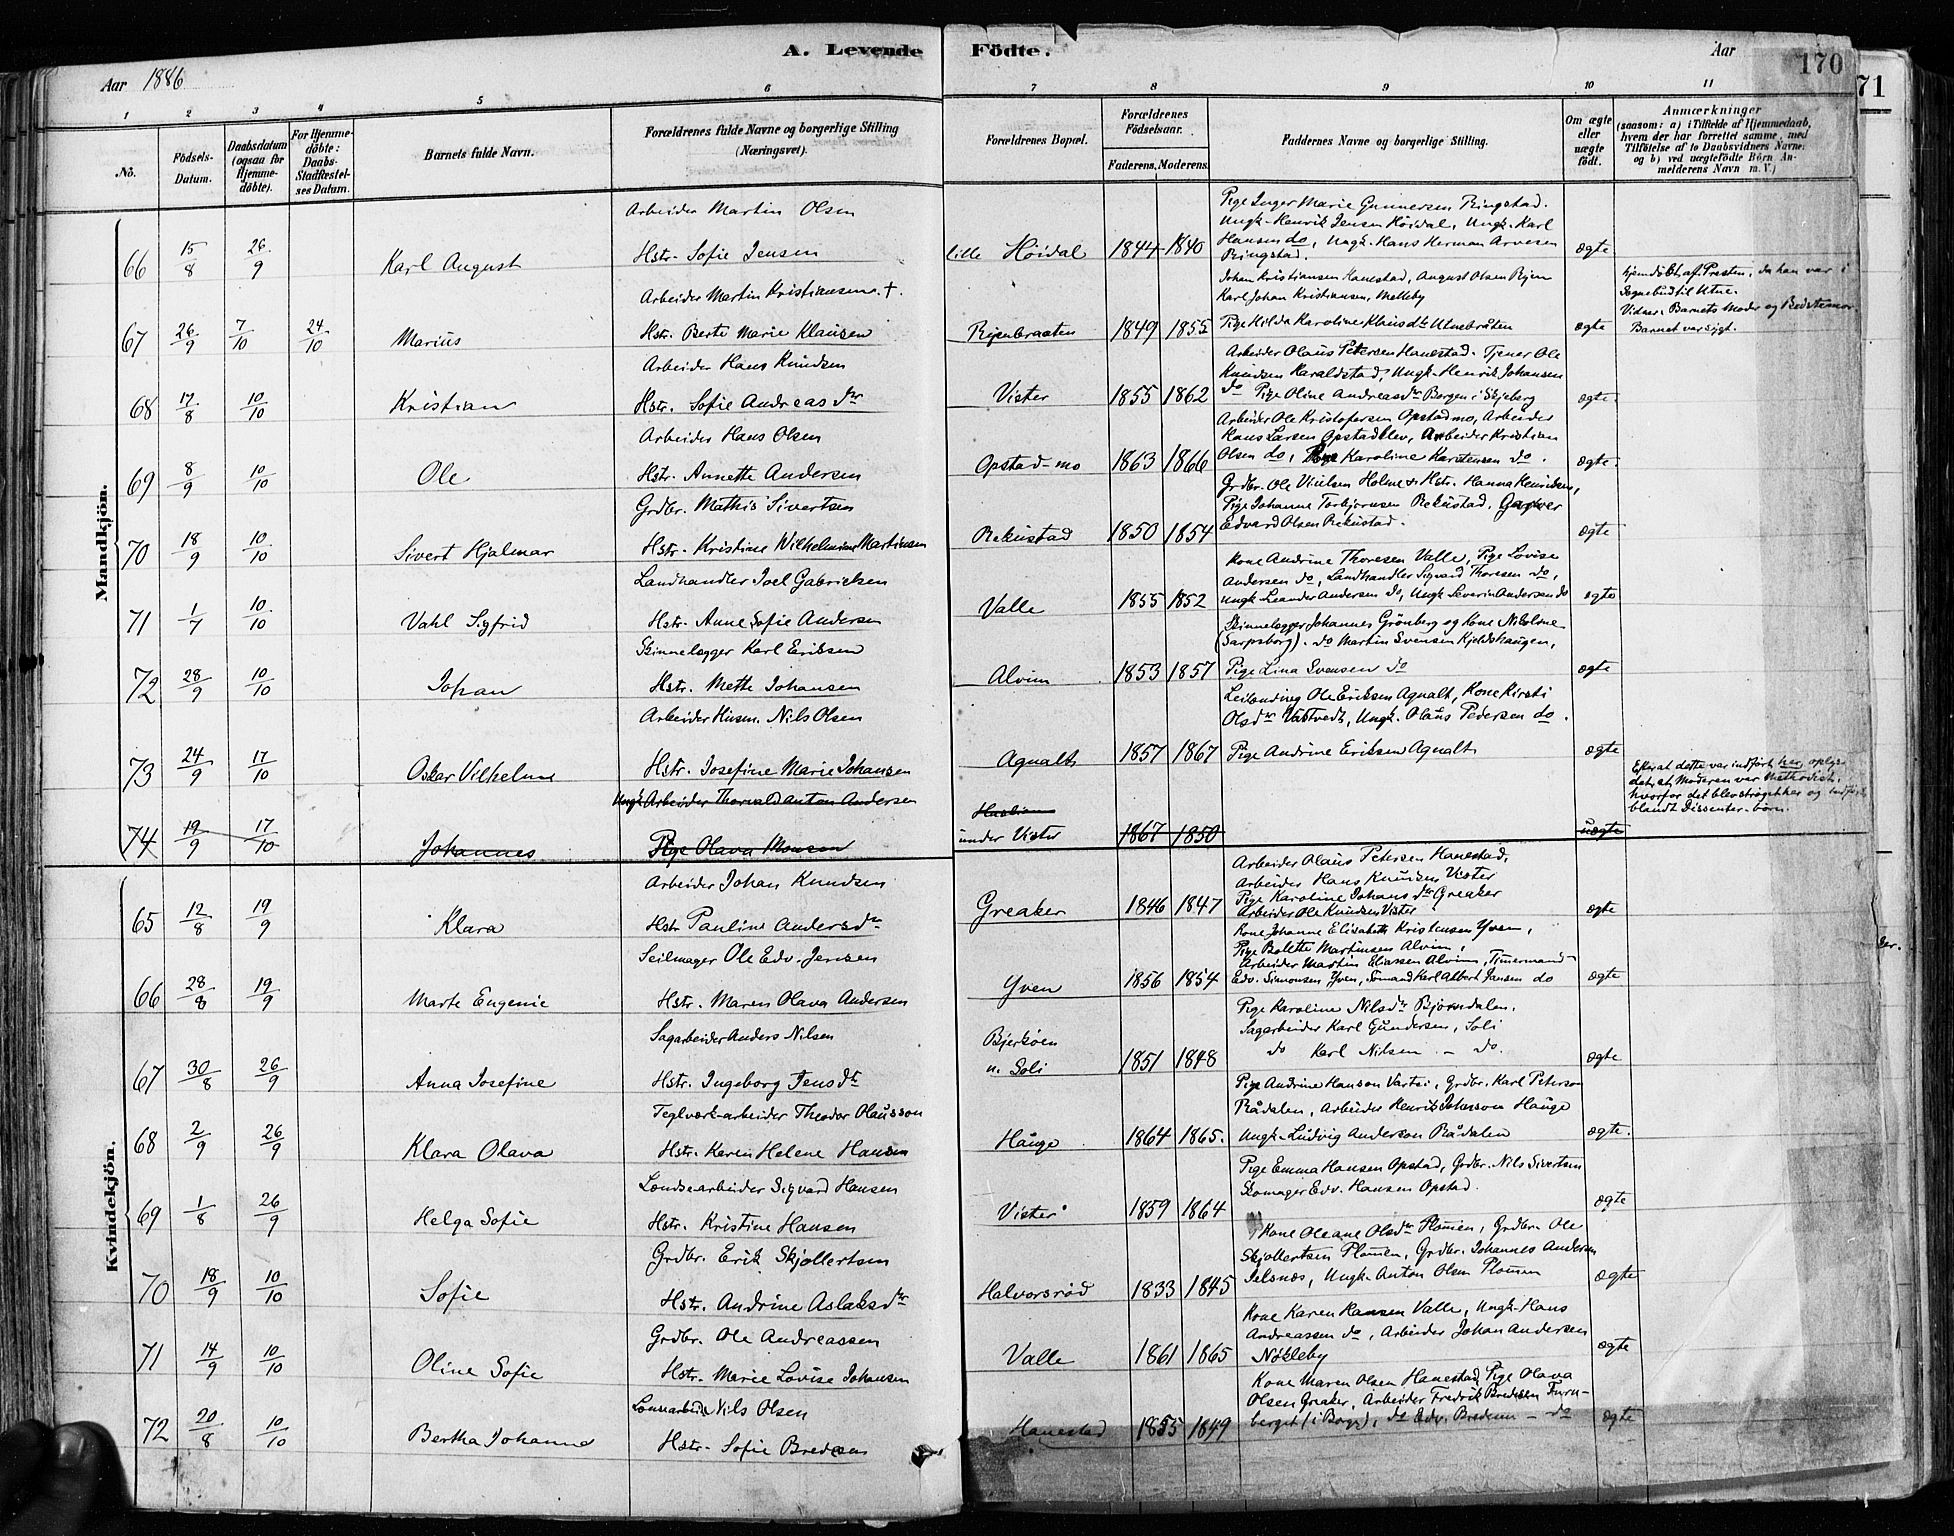 A. Levende Födte.
Aar 1886
Aar
170
71
1 2 3 4 5 6 7 8 9 10 11
No.
Födsels-Datum.
Daabsdatum (ogsaa for Hjemme-döbte).
For Hjemme-döbte: Daabs-Stadfæstel-ses Datum.
Barnets fulde Navn.
Forældrenes fulde Navne og borgerlige Stilling (Næringsvei).
Forældrenes Bopæl.
Forældrenes Födselsaar.
Faderens. Moderens.
Faddernes Navne og borgerlige Stilling.
Om ægte eller uægte födt.
Anmærkninger
(saasom: a) i Tilfælde af Hjemmedaab, hvem der har forrettet samme, med Tilföielse af to Daabsvidners Navne; og b) ved uægtefödte Börn, An-melderens Navn m. V.)
Mandkjön.
66 15/8 26/9 Karl August
Arbeider Martin Olsen
Hstr. Sofie Jensen
lille Höidal 1844 1840
Pige Inger Marie Gunnersen Ringstad.
Ungk. Henrik Jensen Höidal, Ungk. Karl
Hansen do, Ungk. Hans Herman Arvesen
Ringstad.
ægte
67 26/9 7/10 24/10 Marius
Arbeider Martin Kristiansen. †.
Hstr. Berte Marie Klausen
Rijenbraaten 1849 1855
Johan Kristiansen Hanestad, August Olsen Rijen
Karl Johan Kristiansen, Melleby
Pige Hilda Karoline Klausdtr Utnebråten
ægte
hjemdöbt af Presten, da han var i
Sognebud til Utne.
Vidner: Barnets Moder og Bedstemor
Barnet var sygt.
68 17/8 10/10 Kristian
Arbeider Hans Knudsen
Hstr. Sofie Andreasdtr
Vister 1855 1862
Arbeider Olaus Petersen Hanestad. Tjener Ole
Knudsen Haraldstad, Ungk. Henrik Johansen
do Pige Oline Andreasdtr Borgen i Skjeberg
ægte
69 8/9 10/10 Ole
Arbeider Hans Olsen
Hstr. Annette Andersen
Opstad-mo 1863 1866
Arbeider Ole Kristofersen Opstadmo, Arbeider
Hans Larsen Opstadklev, Arbeider Kristian
Olsen do, Pige Karoline Karstensen do.
ægte.
70 18/9 10/10 Sivert Hjalmar
Grdbr. Mathis Sivertsen
Hstr. Kristine Wilhelmine Martinsen
Rekustad 1850 1854
Grdbr. Ole Nielsen Holme & Hstr. Hanna Henriksen,
Pige Johanne Torbjörnsen Rekustad. Garver
Edvard Olsen Rekustad.
ægte
71 1/7 10/10 Vahl Sigfrid
Landhandler Joel Gabrielsen
Hstr. Anne Sofie Andersen
Valle 1855 1852
Kone Andrine Thoresen Valle, Pige Lovise
Andersen do, Landhandler Sigvard Thoresen do,
Ungk. Leander Andersen do, Ungk. Severin Andersen do
ægte
72 28/9 10/10 Johan
Skinnelægger Karl Eriksen
Hstr. Mette Johansen
Alvim 1853 1857
Skinnelægger Johannes Grönberg og Kone Nikoline
(Sarpsborg). do Martin Svensen Kjeldshaugen,
Pige Lina Svensen do
ægte
73 24/9 17/10 Oskar Vilhelm
Arbeider Husm. Nils Olsen
Hstr. Josefine Marie Johansen
Agnalt 1857 1867
Leilending Ole Eriksen Agnalt, Kone Kirsti
Olsdtr Vastvedt, Ungk. Olaus Pedersen do.
Pige Andrine Eriksen Agnalt
ægte
74 19/9 17/10 Johannes
Ungk. Arbeider Thorvald Anton Andersen
Pige Olava Monsen
under Vister 1867 1850
uægte
Efterat dette var indført her, oplyse-
des, at Moderen var Methodist,
hvorfor det blev strøget her og indført
blandt Dissenter-börn.
Kvindekjön.
65 12/8 19/9 Klara
Arbeider Johan Knudsen
Hstr Pauline Andersdtr
Greaker 1846 1847
Arbeider Olaus Petersen Hanestad,
Arbeider Hans Knudsen Vister
Pige Karoline Johansdtr Greaker
Arbeider Ole Knudsen Vister
ægte
66 28/8 19/9 Marte Eugenie
Seilmager Ole Edv. Jensen
Hstr. Maren Olava Andersen
Yven 1856 1854
Kone Johanne Elisabeth Kristensen Yven,
Pige Bolette Martinsen Alvim,
Arbeider Martin Eliassen Alvim, Timermand
Edv. Simonsen Yven, Sömand Karl Albert Jansen do
ægte
67 30/8 26/9 Anna Josefine
Sagarbeider Anders Nilsen
Hstr. Ingeborg Jensdtr
Bjerköen
u. Soli 1851 1848
Pige Karoline Nilsdtr Bjorndalen.
Sagarbeider Karl Gundersen, Soli
do Karl Nilsen — do.
ægte
68 2/9 26/9 Klara Olava
Teglverk-arbeider Theodor Olausson
Hstr. Karen Helene Hansen
Hauge 1864 1865.
Pige Andrine Hanson Vartei, Grdbr. Karl Peterson
Rådalen, Arbeider Henrik Johanson Hauge
Ungk. Ludvig Anderson Rådalen
ægte.
69 1/8 26/9 Helga Sofie
Lændsearbeider Sigvard Hansen
Hstr. Kristine Hansen
Vister 1859 1864
Pige Emma Hansen Opstad, Grdbr. Nils Sivertsen
Skomager Edv. Hansen Opstad.
ægte
70 18/9 10/10 Sofie
Grdbr. Erik Skjöllertsen
Hstr. Andrine Aslaksdtr
Halvorsröd 1833 1845
Kone Oleane Olsdtr Plomen, Grdbr. Ole
Skjöllertsen Plomen, Grdbr. Johannes Andersen
Selsnæs, Ungk. Anton Olsen Plomen
ægte
71 14/9 10/10 Oline Sofie
Grdbr. Ole Andreassen
Hstr. Marie Lovise Johansen
Valle 1861 1865
Kone Karen Hansen Valle, Ungk. Hans
Andreassen do, Arbeider Johan Andersen
Nökleby
ægte
72 20/8 10/10 Bertha Johanne
Nils Olsen
Hstr. Sofie Bredesen
Hanestad 1855 1849
Kone Maren Olsen Hanestad, Pige Olava
Olsen Greaker, Arbeider Fredrik Bredesen Furu-
berget (i Borge), do Edv. Bredesen — do
ægte